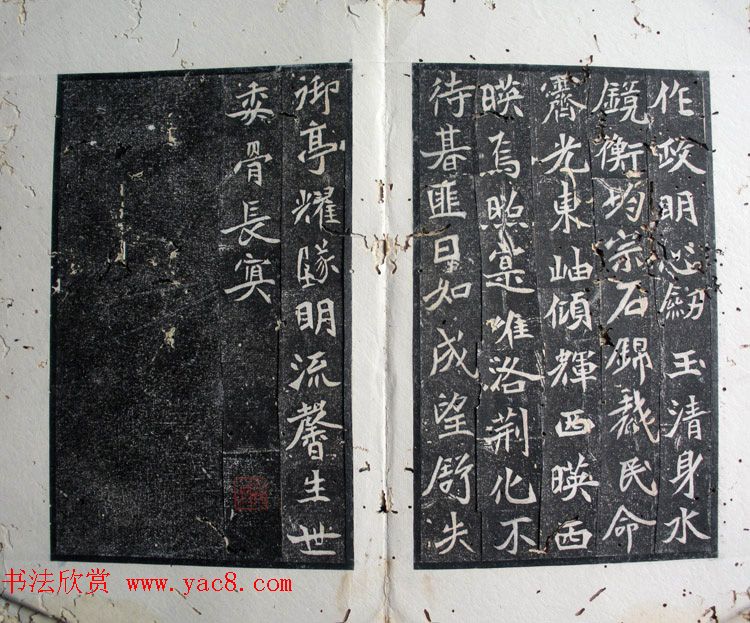 作政明心紉玉清身水
鏡衡均宗石錦裁民命
霽光東岫傾輝西暎西
暎焉照寔唯洛荊化不
待朞匪日如成望舒失
御亭耀墜明流馨生世
奕骨長㝠
书法欣赏 www.yac8.com